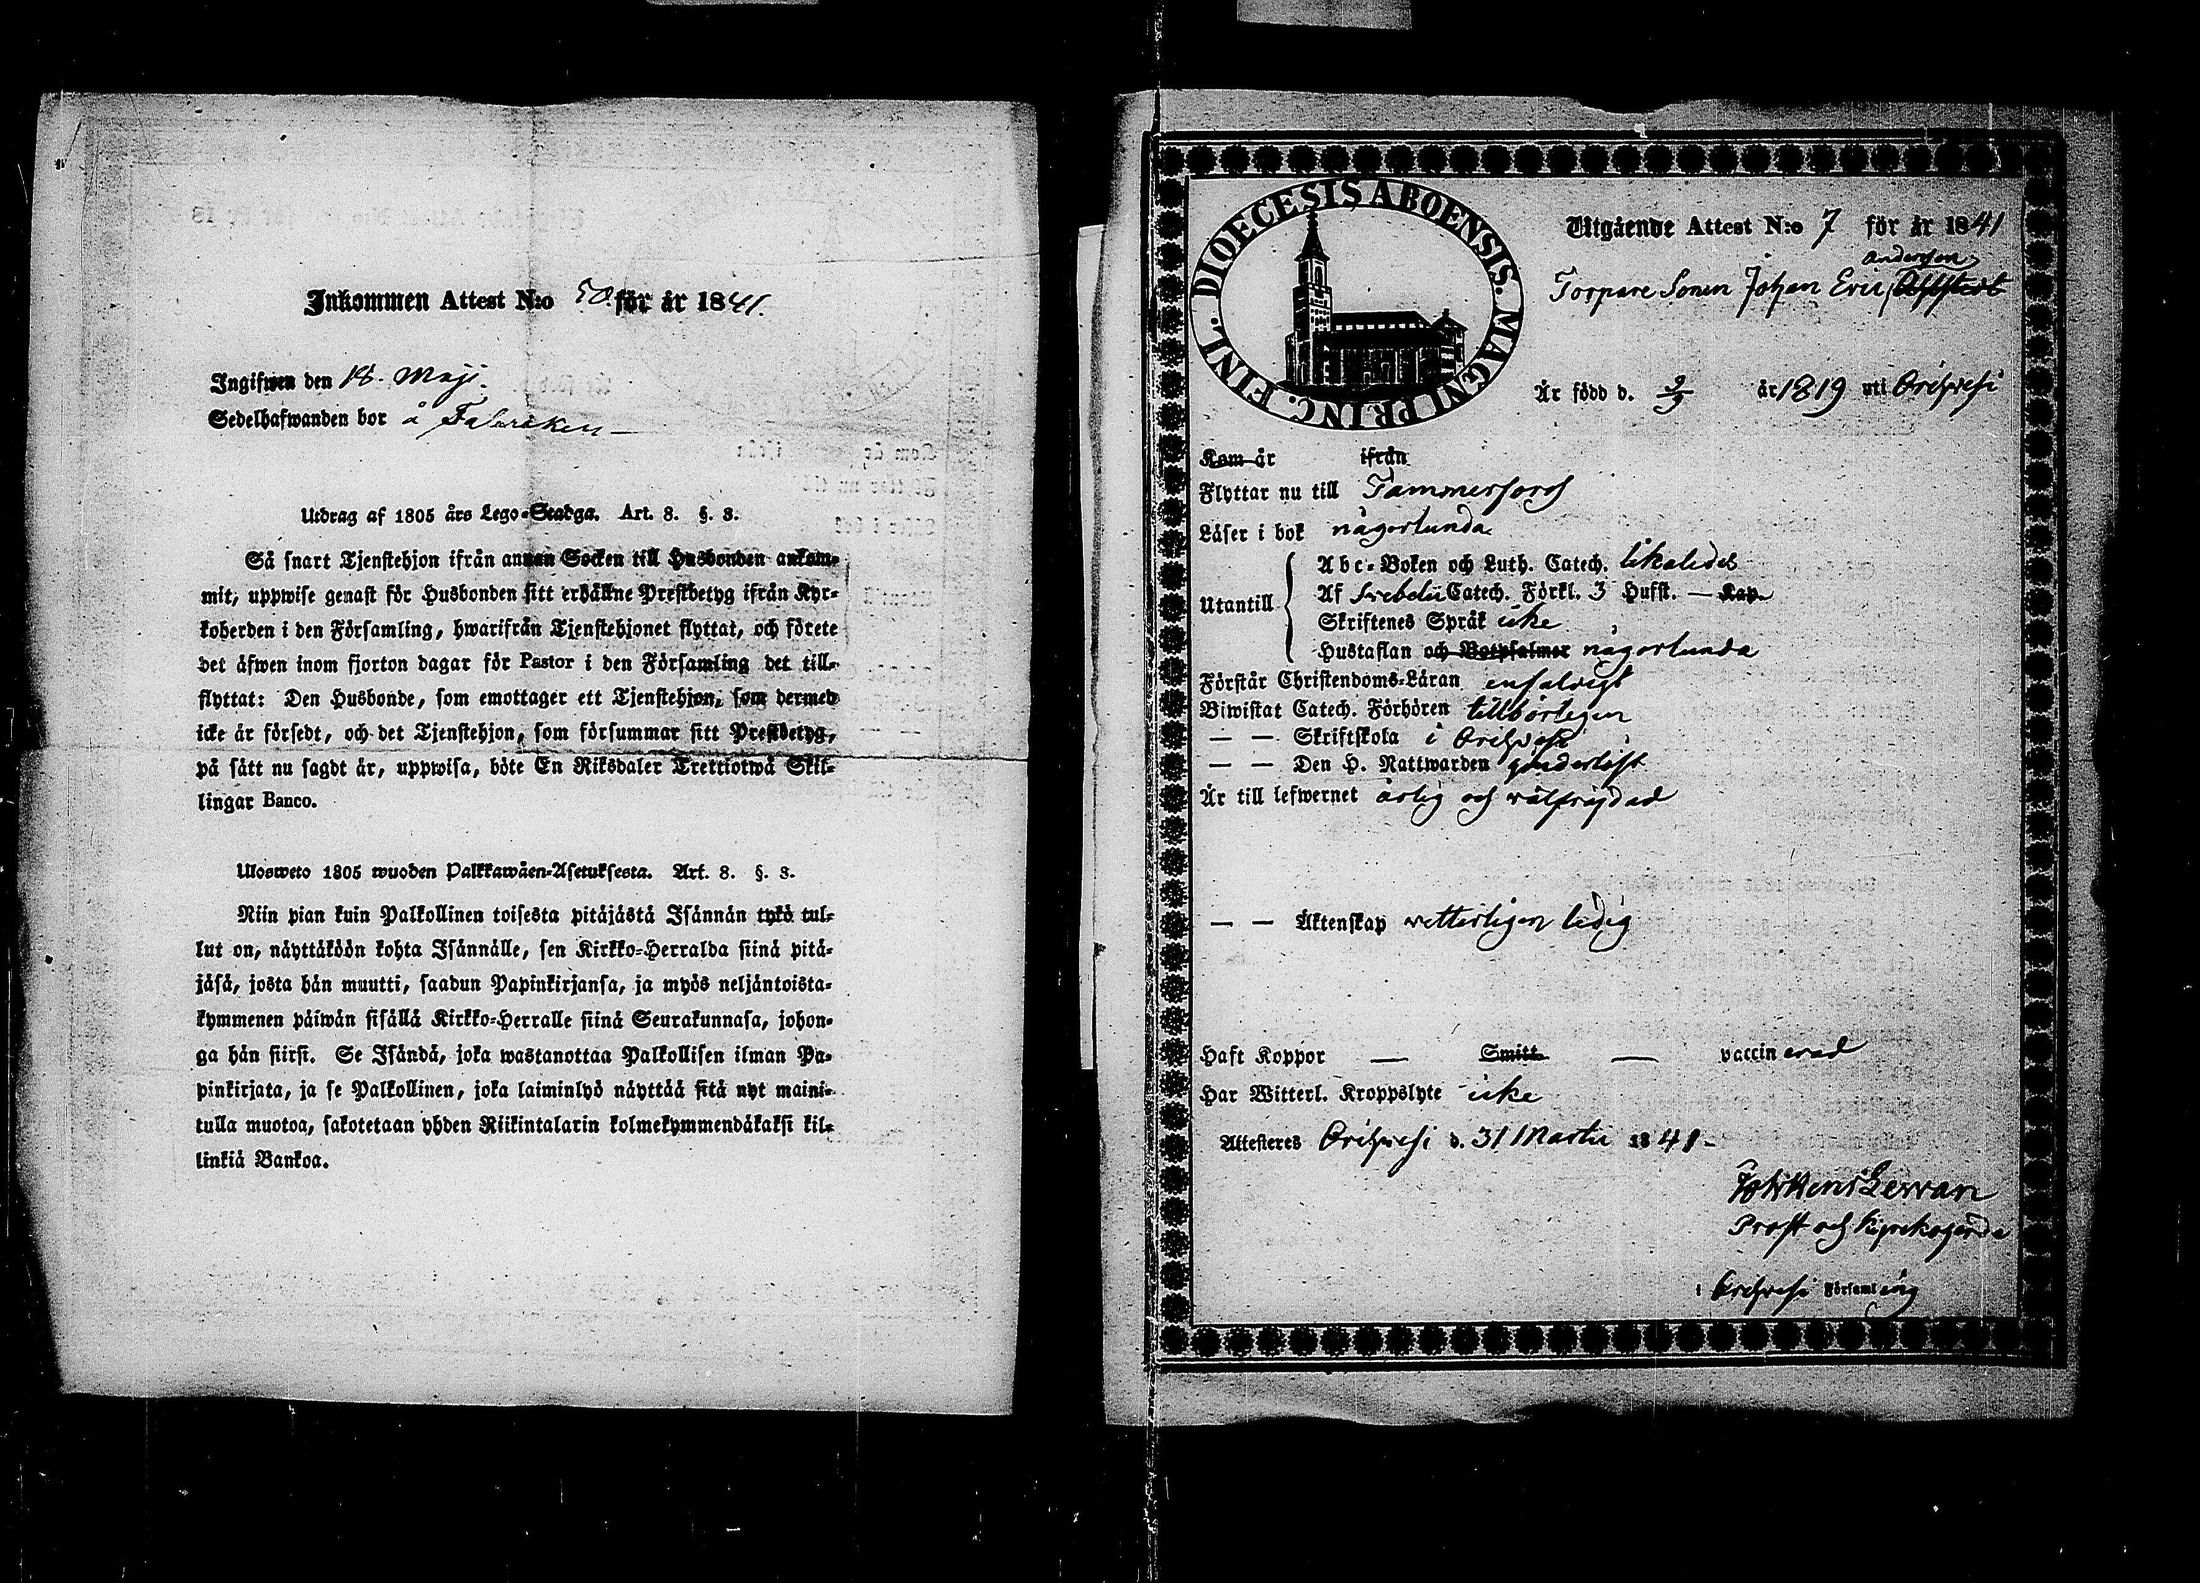 Inkommen Attest N:o 50. för år 1841.
Ingifwen den 18. Maji.
Sedelhafwanden bor å Fabriken
Utdrag af 1805 års Lego-Stadga. Art. 8. §. 3.
Så snart Tjenstehjon ifrån annan Socken till Husbonden ankom-
mit, uppwise genast för Husbonden sitt erhållne Prestbetyg ifrån Kyr-
koherden i den Församling, hwarifrån Tjenstehjonet flyttat, och förete
det äfwen inom fjorton dagar för Pastor i den Församling det till-
flyttat: Den Husbonde, som emottager ett Tjenstehjon, som dermed
icke är försedt, och det Tjenstehjon, som försummar sitt Prestbetyg,
på sätt nu sagdt är, uppwisa, böte En Riksdaler Trettiotwå Skil-
lingar Banco.
Ulosweto 1805 wuoden Palkkawäen-Asetuksesta. Art. 8. §. 3.
Niin pian kuin Palkollinen toisesta pitäjästä Isännän tykö tul-
lut on, näyttäköön kohta Isännälle, sen Kirkko-Herralda siinä pitä-
jäsä, josta hän muutti, saadun Papinkirjansa, ja myös neljäntoista-
kymmenen päiwän sisällä Kirkko-Herralle siinä Seurakunnasa, johon-
ga hän siirsi. Se Isändä, joka wastanottaa Palkollisen ilman Pa-
pinkirjata, ja se Palkollinen, joka laiminlyö näyttää sitä nyt maini-
tulla muotoa, sakotetaan yhden Riikintalarin kolmekymmendäkaksi kil-
linkiä Bankoa.
DIOECESIS ABOENSIS. MAGNI PRINC. FINL.
Utgående Attest N:o 7 för år 1841
Anderson
Torpare Sonen Johan Eric
Är född d. 2/9 år 1819 uti Orihvesi
Kom år ifrån
Flyttar nu till Tammerfors
Läser i bok någorlunda
Utantill
Abc-Boken och Luth. Catech. likaledes
Af Svebelii Catech. Förkl. 3 Hufst. — Kap.
Skriftenes Språk icke
Hustaflan och Botpsalmer någorlunda
Förstår Christendoms-Läran enfaldigt
Biwistat Catech. Förhören tillbörligen
— — Skriftskola i Orihvesi
— — Den H. Nattwarden
Är till lefwernet ärlig och välfrejdad
— — Äktenskap vetterligen ledig
Haft Koppor — Smitt. — vaccinerad
Har Witterl. Kroppslyte icke
Attesteres Orihvesi d. 31 Martii 1841 -
Prost och Kyrkoherde
i Orihvesi Församling